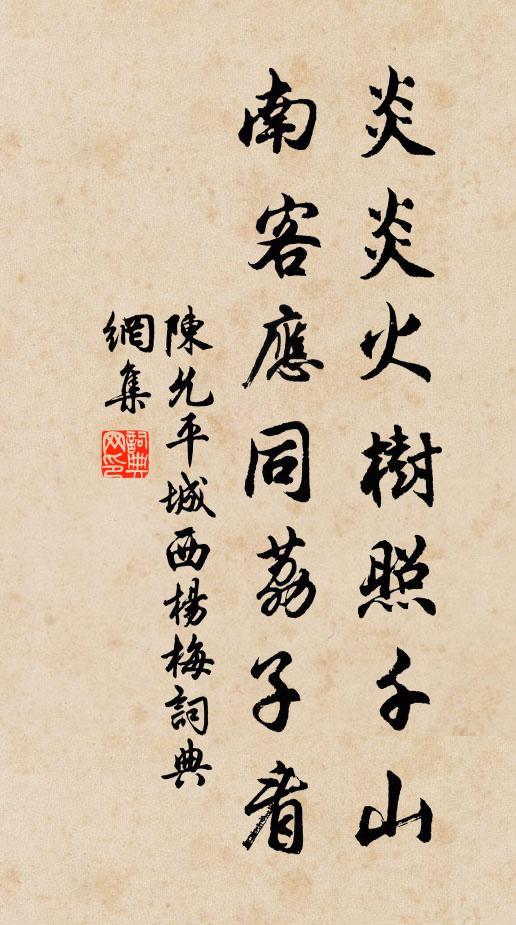 炎炎火樹照千山
南客應同荔子看
陳允平城西楊梅詞典
網集
詞典
网印